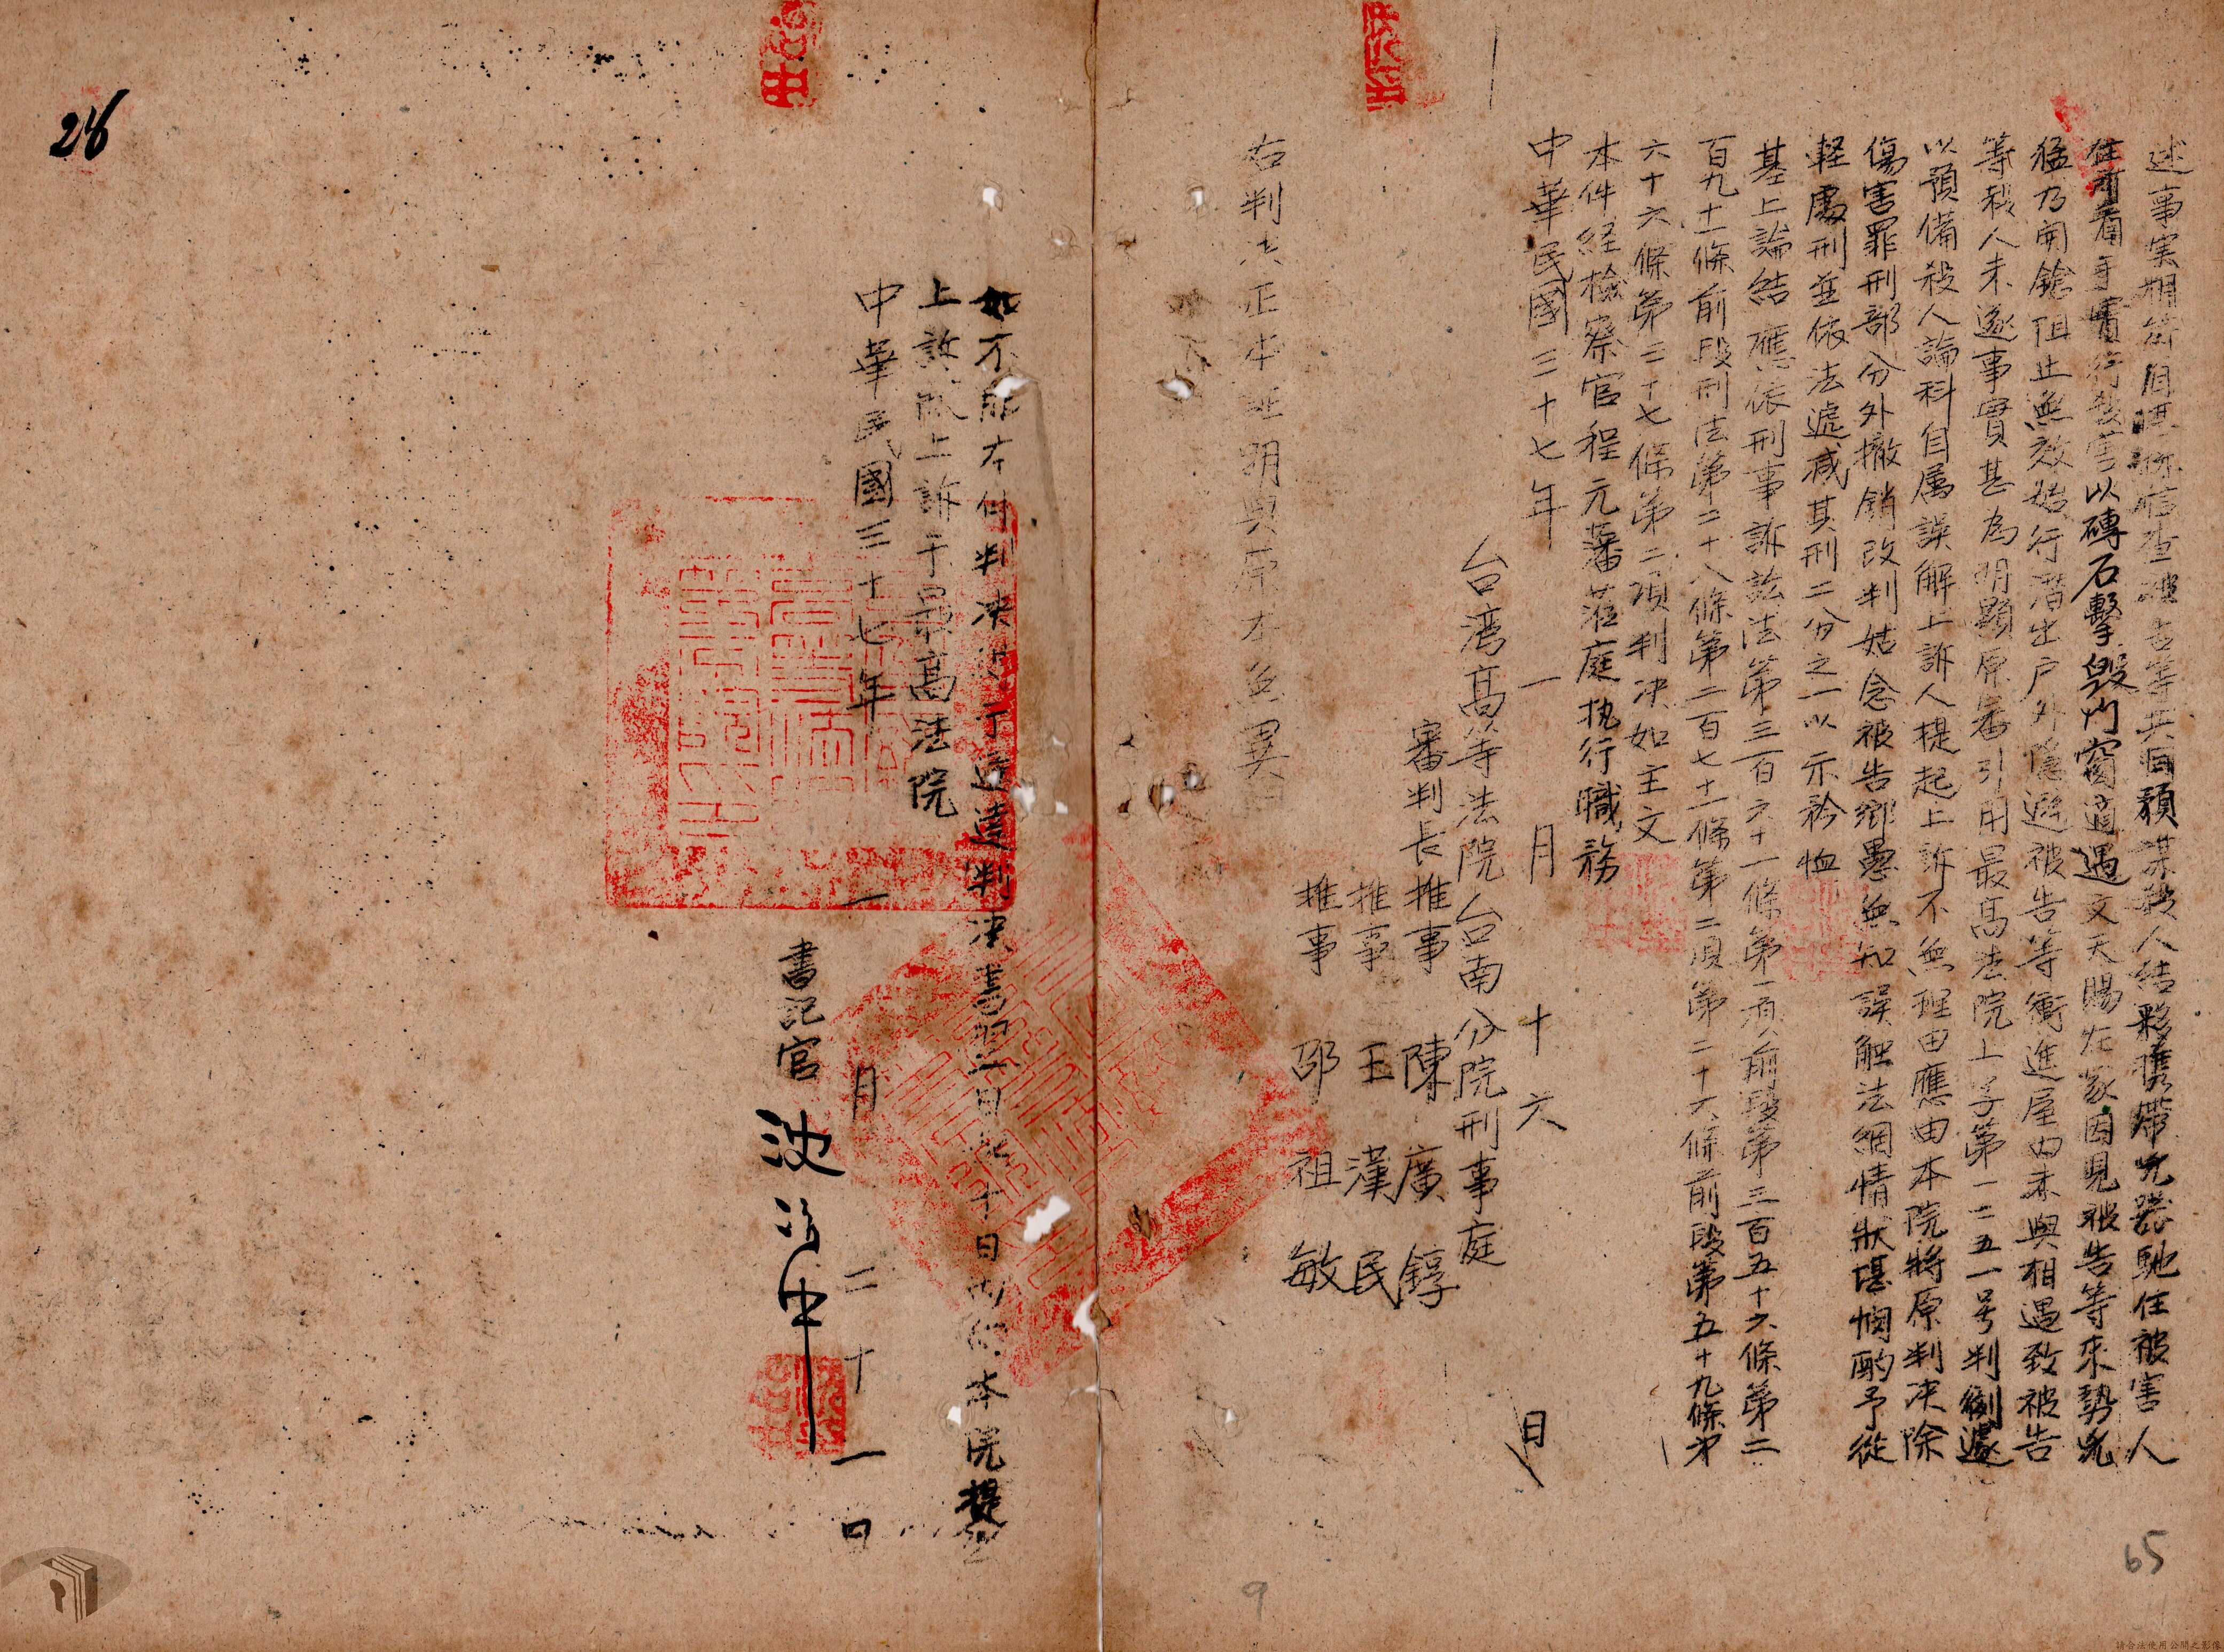 述事実相符自堪採信查被告等共同預謀殺人結夥携帶兇器馳往被害人
住所着手實行殺害以磚石擊毀門窗適遇文天賜在家因見被告等來勢兇
猛乃開鎗阻止無效始行潛出戶外隱避被告等衝進屋內未與相遇致被告
等殺人未遂事實甚為明顯原審引用最高法院上字第一二五一号判例遽
以預備殺人論科自属誤解上訴人提起上訴不無理由應由本院將原判决除
傷害罪刑部分外撤銷改判姑念被告鄉愚無知誤觸法網情狀堪憫酌予從
軽處刑並依法遞减其刑二分之一以示矜恤
基上論結應依刑事訴訟法第三百六十一條第一項前段第三百五十六條第二
百九十一條前段刑法第二十八條第二百七十一條第二項第二十六條前段第五十九條第
六十六條第三十七條第二項判决如主文
本件経檢察官程元藩蒞庭执行職務
中華民國三十七年一月十六日
台湾高等法院台南分院刑事庭
審判長推事 陳廣錞
推事 王漢民
推事 邵祖敏
右判决正本証明與原本無異
如不服本件判决得于送達判决書翌日起十日內向本院提
上訴狀上訴于最高法院
中華民國三十七年一月二十一日
書記官 沈
26
65
9
請合法使用公開之影像